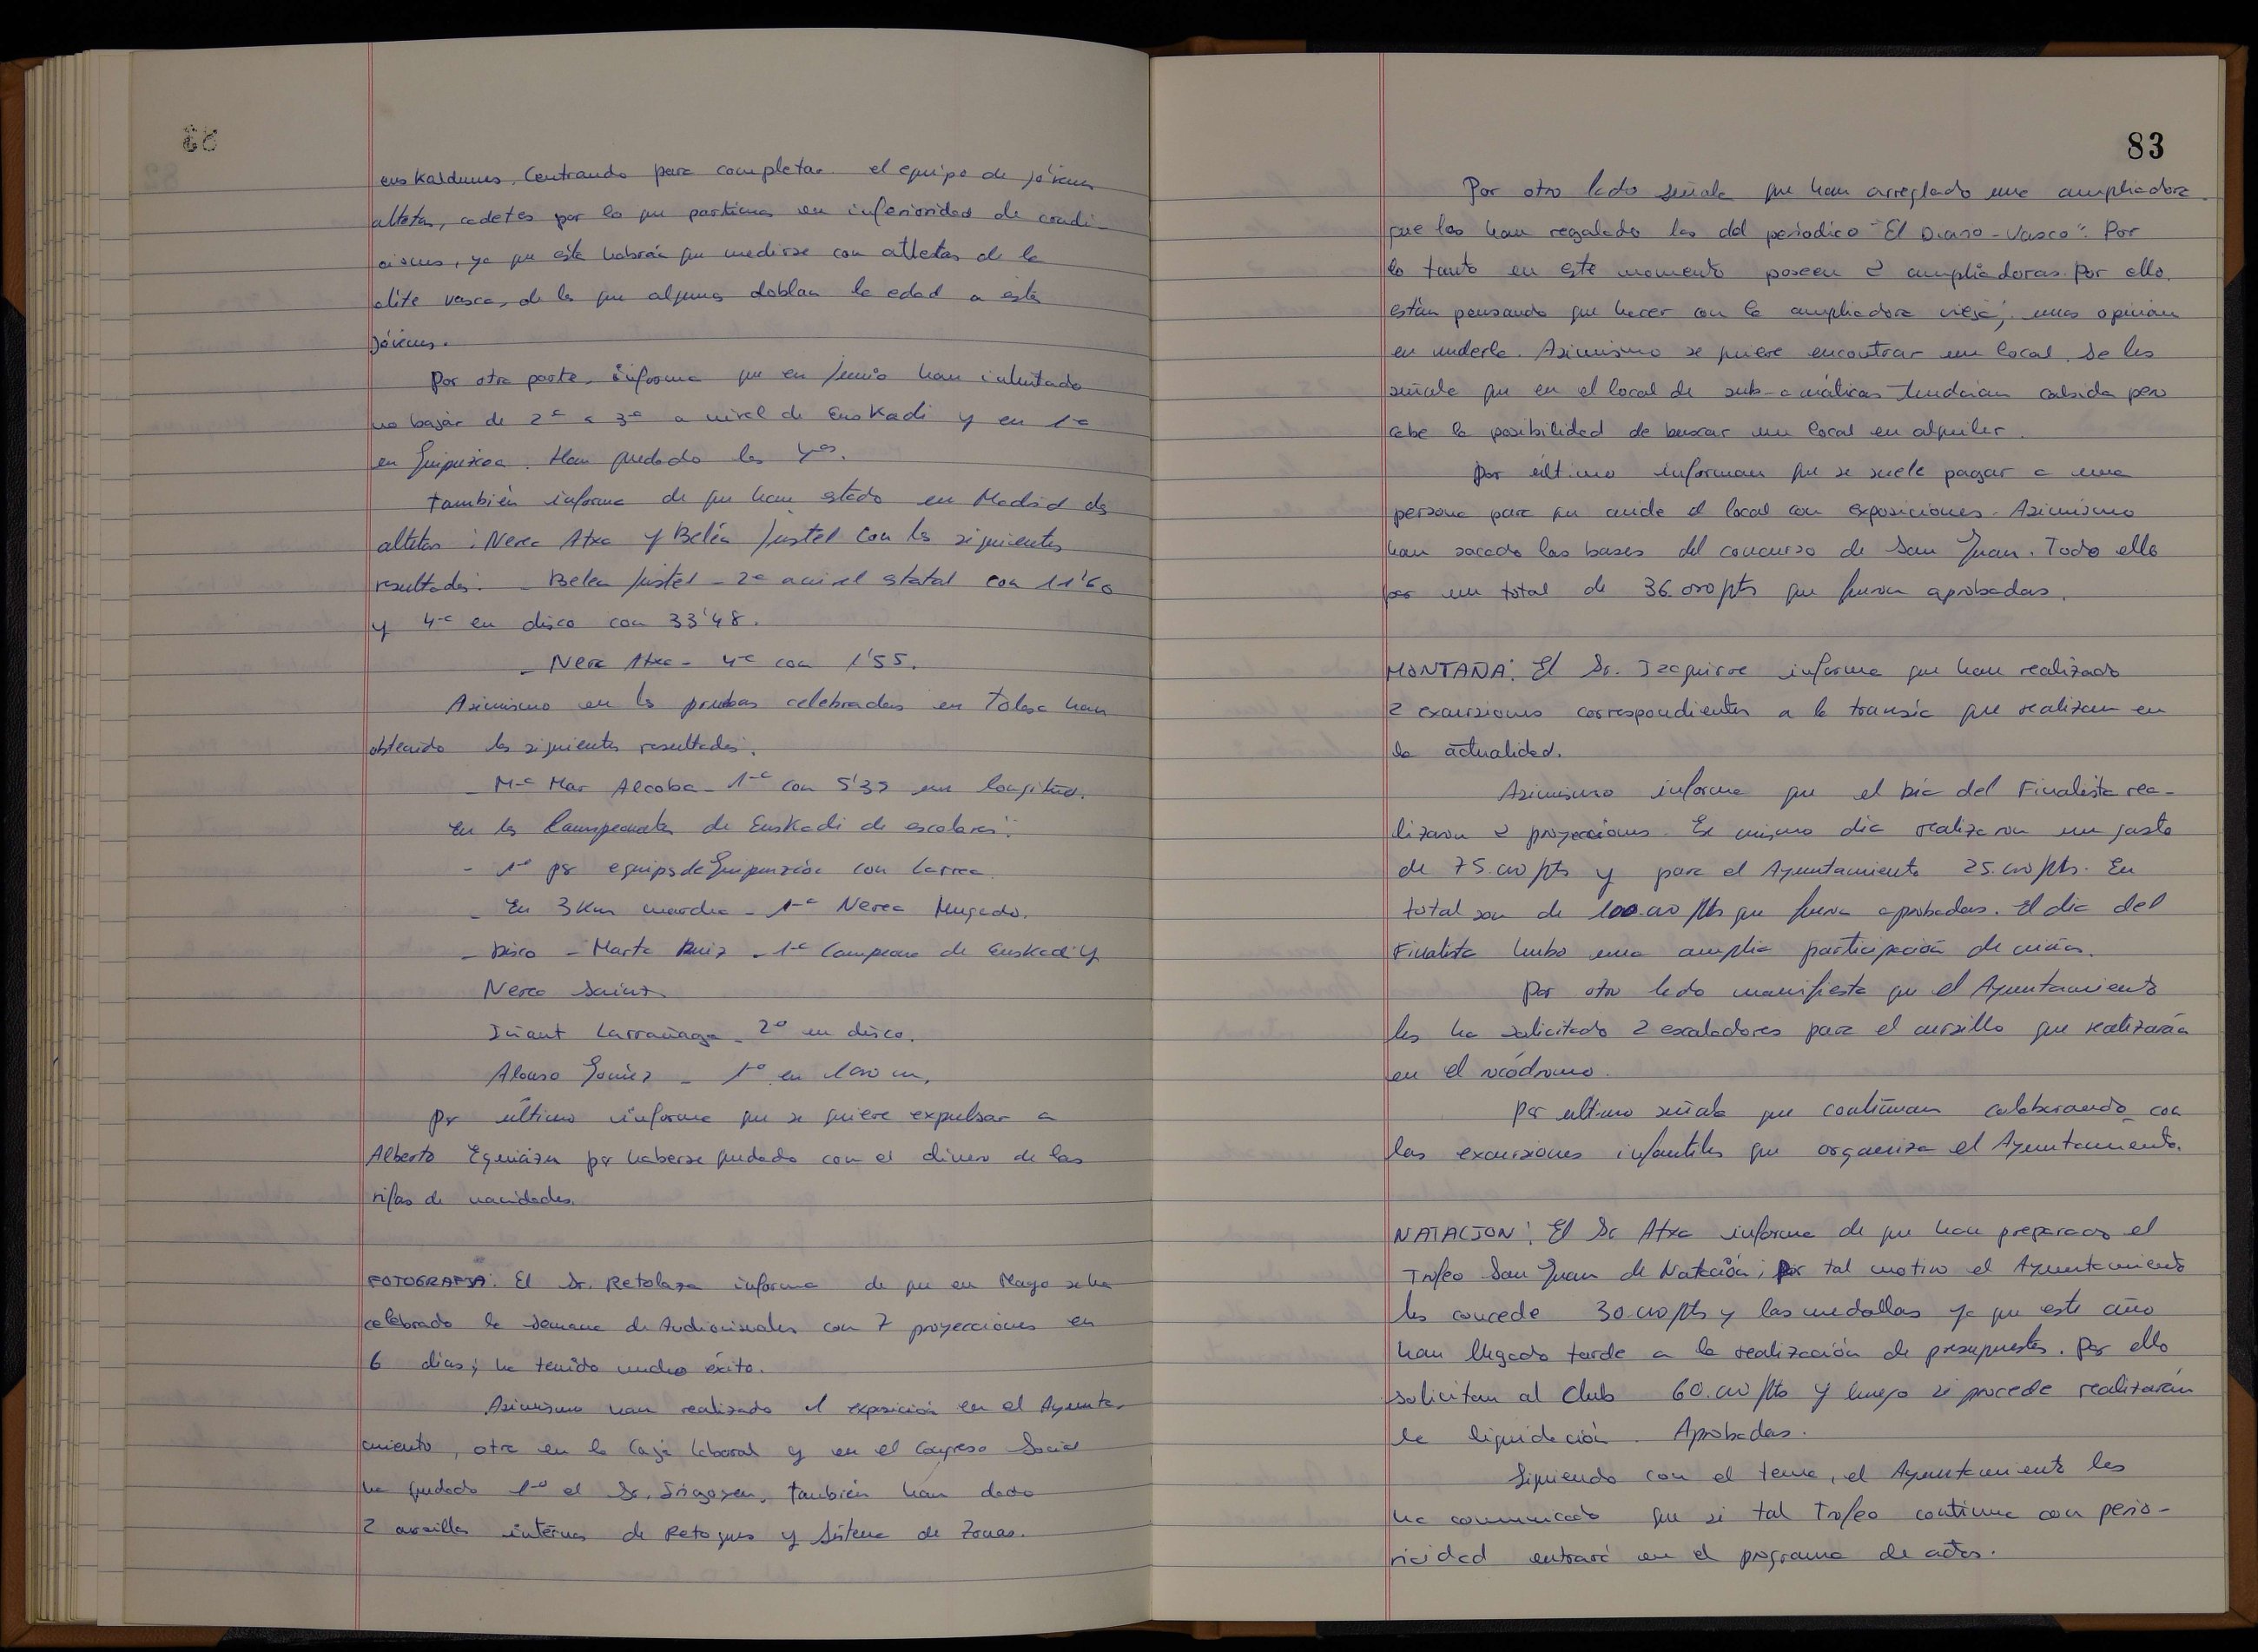 euskaldunes. Centrando para completar el equipo de jóvenes
altetas, cadetes por lo que partimos en inferioridad de condi-
ciones, ya que éstas habrán que medirse con atletas de la
élite vasca, de las que algunas doblan la edad a estas
jóvenes.
Por otra parte, informa que en Junio han intentado
no bajar de 2ª a 3ª a nivel de Euskadi y en 1ª
en Guipúzcoa. Han quedado las 4as.
También informa de que han estado en Madrid dos
altetas: Nerea Atxa y Belén Justel con los siguientes
resultados: - Belen Justel - 2ª a nivel estatal con 11'60
y 4ª en disco con 33'48.
- Nerea Atxa - 4ª con 1'55.
Asimismo en las pruebas celebradas en Tolosa han
obtenido los siguientes resultados.
- Mª Mar Alcoba - 1ª con 5'32 en longitud.
En los Campeonatos de Euskadi de escolares:
- 1º por equipos de Guipuzcoa con Larrea.
- En 3 Km marcha - 1ª Nerea Mugado.
- Disco - Marta Ruiz - 1ª Campeona de Euskadi y
Nerea Sainz
Iñaut Larrañaga - 2º en disco.
Alonso Gomez - 1º en 1000 m.
Por último informa que se quiere expulsar a
Alberto Eguiazu por haberse quedado con el dinero de las
rifas de navidades.
FOTOGRAFIA: El Sr. Retolaza informa de que en Mayo se ha
celebrado la Semana de Audiovisuales con 7 proyecciones en
6 días; ha tenido mucho éxito.
Asimismo han realizado 1 exposición en el Ayunta-
miento, otra en la Caja Laboral y en el Congreso Social
ha quedado 1º el Sr. Irigoyen. También han dado
2 cursillos internos de Retoques y Sistema de Zonas.
83
Por otro lado señala que han arreglado una ampliadora
que les han regalado los del periodico "El Diario-Vasco". Por
lo tanto en este momento poseen 2 ampliadoras. Por ello
están pensando que hacer con la ampliadora vieja; unos opinan
en venderla. Asimismo se quiere encontrar un local. Se les
señala que en el local de sub-acuáticas tendrían cabida pero
cabe la posibilidad de buscar un local en alquiler.
Por último informan que se suele pagar a una
persona para que cuide el local con exposiciones. Asimismo
han sacado las bases del concurso de San Juan. Todo ello
por un total de 36.000 pts que fueron aprobadas.
MONTAÑA: El Sr. Izaguirre informa que han realizado
2 excursiones correspondientes a la travesía que realizan en
la actualidad.
Asimismo informa que el Día del Finalista rea-
lizaron 2 proyecciones. Ese mismo día realizaron un gasto
de 75.000 pts y para el Ayuntamiento 25.000 pts. En
total son de 100.000 pts que fueron aprobadas. El día del
Finalista hubo una amplia participación de niños.
Por otro lado manifiesta que el Ayuntamiento
les ha solicitado 2 escaladores para el cursillo que realizarán
en el rocódromo.
Por ultimo señala que continuan colaborando con
las excursiones infantiles que organiza el Ayuntamiento.
NATACION: El Sr Atxa informa de que han preparado el
Trofeo San Juan de Natación; por tal motivo el Ayuntamiento
les concede 30.000 pts y las medallas ya que este año
han llegado tarde a la realización de presupuestos. Por ello
solicitan al Club 60.000 pts y luego si procede realizarán
la liquidación. Aprobadas.
Siguiendo con el tema, el Ayuntamiento les
ha comunicado que si tal Trofeo continua con perio-
ricidad entrará en el programa de actos.